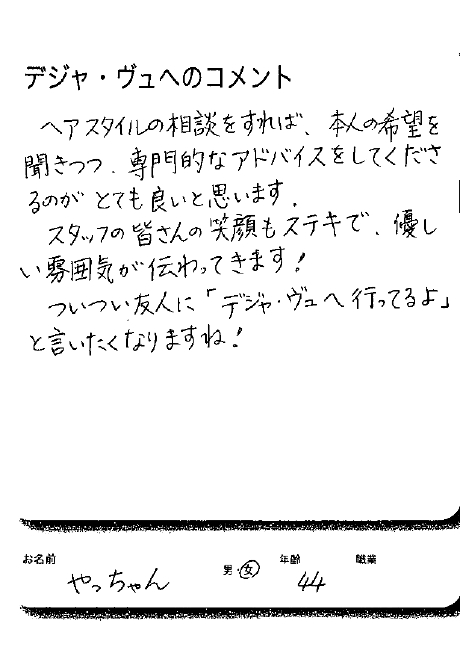 デジャ・ヴュへのコメント
ヘアスタイルの相談をすれば、本人の希望を
聞きつつ、専門的なアドバイスをしてくださ
るのが とても良いと思います。
スタッフの皆さんの笑顔もステキで、優し
い雰囲気が伝わってきます!
ついつい友人に「デジャ・ヴュへ行ってるよ」
と言いたくなりますね!
お名前 やっちゃん 男・女 年齢 44 職業